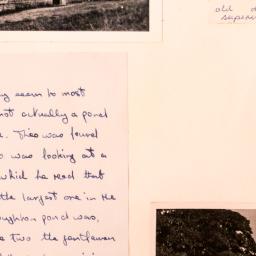 old
super
seem to most
not actually a pond
This was found
was looking at a
which he read that
the largest one in the
oughton pond was,
two the gentleman